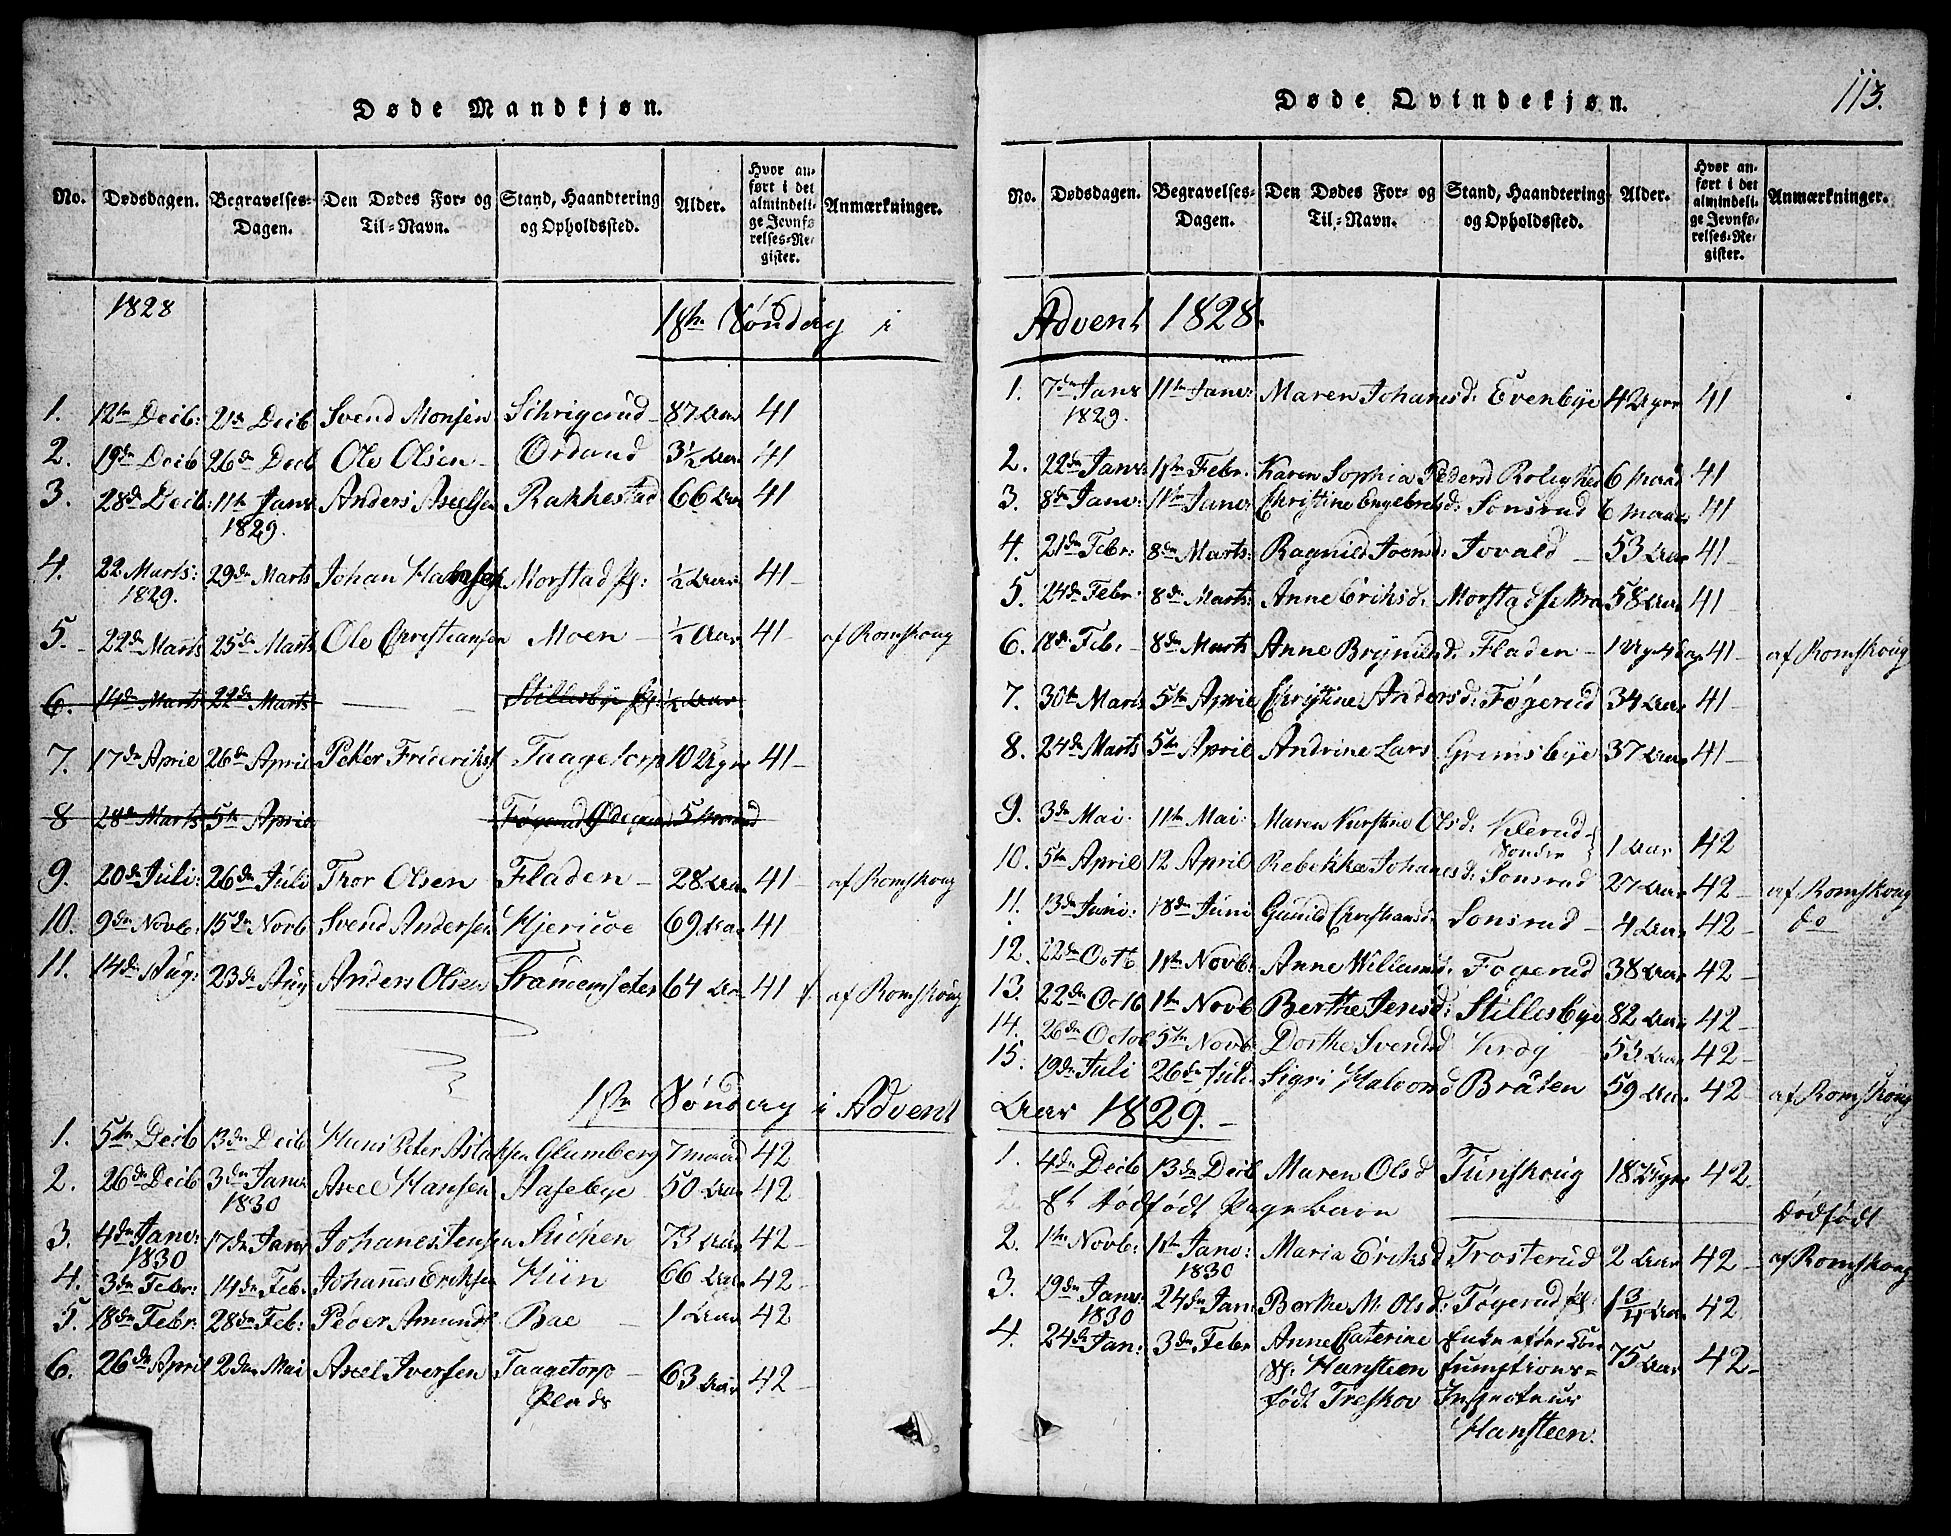 Døde Mandkjøn.
No. Dødsdagen. Begravelses-Dagen. Den Dødes For- og Til-Navn. Stand, Haandtering og Opholdssted. Alder. Hvor anført i det almindelige Jevnførelses-Register. Anmærkninger.
1828 1ste Søndag i
1. 12te Decb: 21de Decb Svend Monsen 87 Aar 41
2. 19de Decb 26de Decb Ole Olsen Ordaud 3 1/2 Aar 41
3. 28de Decb: 11te Janr 1829. Anders Axelsen Rakkestad 66 Aar 41
4. 22 Marts: 1829. 29de Marts Johan Hansen Morstad Pl: 1/2 Aar 41
5. 22de Marts 25de Marts Ole Christiansen Moen 1/2 Aar 41 af Romskoug
6. 14de Marts 22de Marts Stillesbye Pl: 1/2 Aar
7. 17de April 26de April Peter Frideriks Taagetorp 10 Uger 41
8 28de Marts 5te April Føgerud Ødegaard 5 Maaned
9. 20de Juli: 26de Juli Thor Olsen Fladen 28 Aar 41 af Romskoug
10. 9de Novb: 15de Novb Svend Andersen Kjericoe 69 Aar 41
11. 14de Aug: 23de Aug Anders Olsen 64 Aar 41 af Romskoug
1ste Søndag i Advent
1. 5te Decb 13de Decb Hans Peter Aslaksen Glumberg 7 maan 42
2. 26de Decb 3de Janr 1830 Axel Hansen Aasebye 50 Aar 42
3. 4de Janr: 1830 17de Janr Johanes Jensen Stikken 73 Aar 42
4. 3de Febr: 14de Feb: Johanes Eriksen Kiin 66 Aar 42
5. 18de Febr: 28de Feb: Peder Amunds Bae 1 Aar 42
6. 26de April 2den Mai Axel Iversen Taagetorp Plads 63 Aar 42
Døde Qvindekjøn. 113.
No. Dødsdagen. Begravelses-Dagen. Den Dødes For- og Til-Navn. Stand, Haandtering og Opholdssted. Alder. Hvor anført i det almindelige Jevnførelses-Register. Anmærkninger.
Advent 1828.
1. 7de Janr 1829. 11te Janr: Maren Johanesd: Evenbye 42 Uger 41
2. 22de Janr: 1ste Febr: Karen Sophia Pedersd Rolighed 6 Maan 41
3. 8de Janr: 11te Janr Christine Engebretsd: Sonsrud 6 maan 41
4. 21de Febr: 8de Marts: Ragnild Joensd: Tovald 53 Aar 41
5. 24de Febr: 8de Marts: Anne Eriksd: 58 Aar 41
6. 18de Feb: 8de Marts Anne Brynilds: Fladen 1 Ug 4 Dag 41 af Romskoug
7. 30te Marts 5te April Christine Andersd: Føgerud 34 Aar 41
8. 24de Marts 5te April Andrine Lars Grimsbye 37 Aar 41
9. 3de Mai: 11te Mai: Maren Kirstine Olsd: Kilerud Søndre 1 Aar 42
10. 5te April 12 April Rebekka Johanesd: Sonsrud 27 Aar 42 af Romskoug
11. 13de Juni: 18de Juni Gunild Christiansd: Sonsrud 4 Aar 42 do
12. 22de Octb 1ste Novb: Anne Willumsd: Føgerud 38 Aar 42
13. 22de Octb 1te Novb Berthe Jensd: Stillesbye 82 Aar 42
14. 26de Octob 5te Novb Dorthe Svendsd Krog 53 Aar 42
15. 19de Juli 26de Juli: Sigri Halvorsd Bråten 59 Aar 42 af Romskoug
Aar 1829.
1. 4de Decb 13de Decb Maren Olsd Tunskoug 18 Uger 42.
Et dødfødt Pigebarn Dødfødt
2. 1te Novb: 1ste Janr: 1830 Maria Eriksd: Trosterud 2 Aar 42 af Romskoug
3. 19de Janr: 1830 24de Jan: Berthe M: Olsd: Føgerud Pl: 1 3/4 Aar 42
4. 24de Jan: 3de Febr Anne Caterine Hansteen født Treskov Enke efter Consumptions-Inspecteur Hansteen. 75 Aar 42